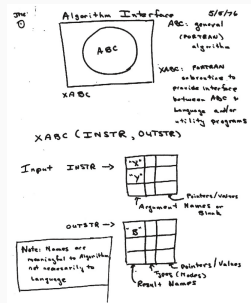 Algorithm Interface
5/5/76
ABC: general
(FORTRAN)
algorithm
ABC
XABC
XABC: FORTRAN
subroutine to
provide interface
between ABC &
language and/or
utility programs
XABC (INSTR, OUTSTR)
Input INSTR →
"X"
"Y"
Pointers/Values
Argument Names or
Blank
OUTSTR →
"B"
Pointers/Values
(Modes)
Result Names
Note: Names are
meaningful to Algorithm,
not necessarily to
Language